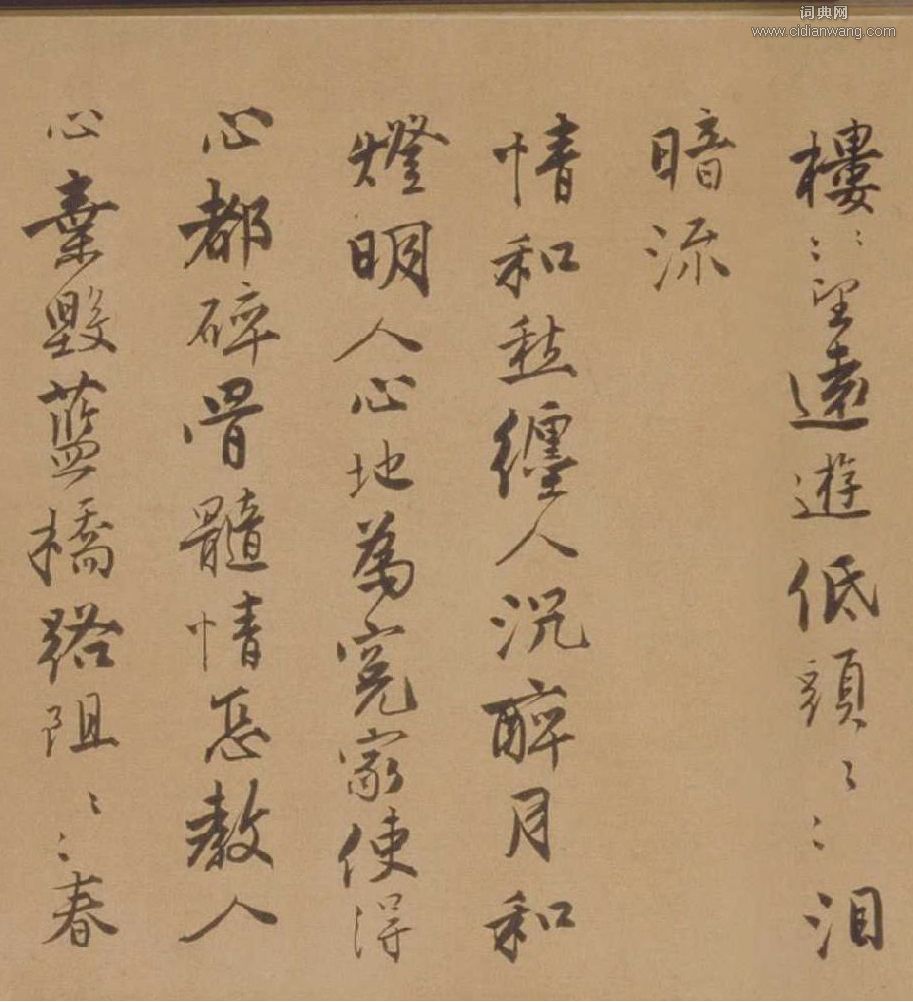 詞典网
www.cidianwang.com
樓〻〻望遠遊低頭〻〻淚
暗流
情和愁纏人沉醉月和
燈明人心地為寃家使得
心都碎骨髓情怎教人
心棄毀藍橋路阻〻〻春